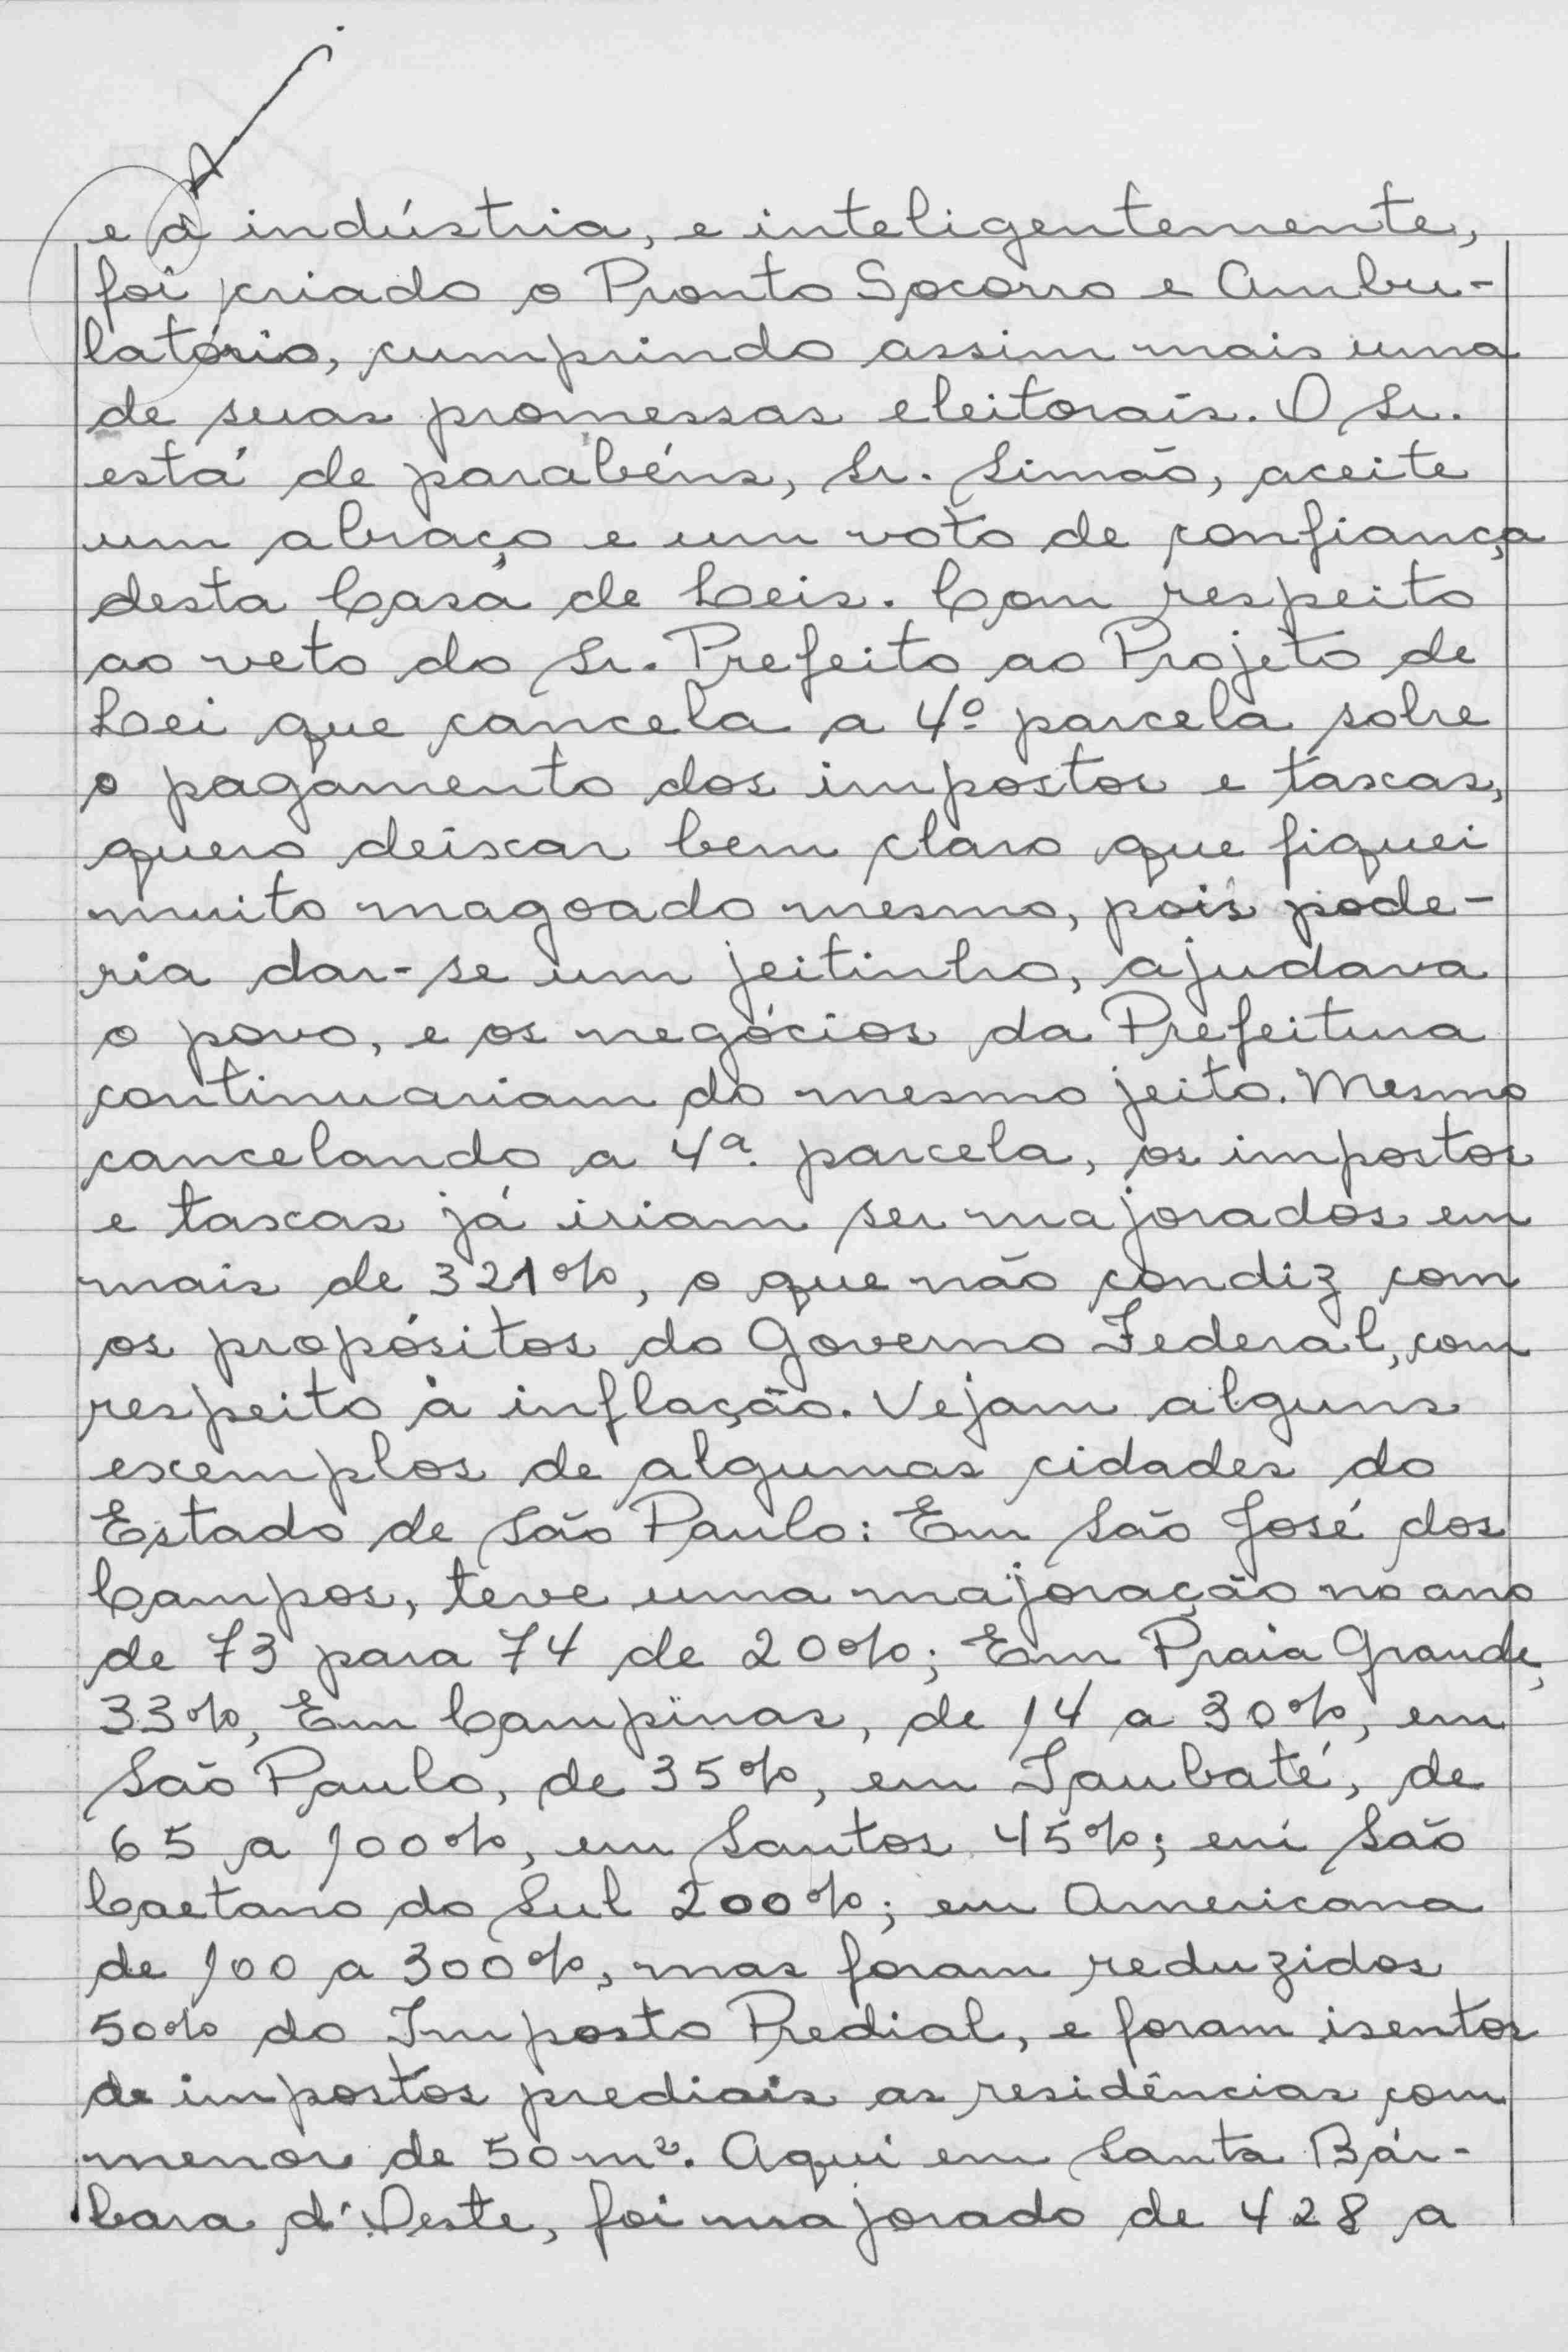 e à indústria, e inteligentemente,
foi criado o Pronto Socorro e Ambu-
latório, cumprindo assim mais uma
de suas promessas eleitorais. O Sr.
está de parabéns, Sr. Simão, aceite
um abraço e um voto de confiança
desta Casa de Leis. Com respeito
ao veto do Sr. Prefeito ao Projeto de
Lei que cancela a 4º parcela sobre
o pagamento dos impostos e taxas,
quero deixar bem claro que fiquei
muito magoado mesmo, pois pode-
ria dar-se um jeitinho, ajudava
o povo, e os negócios da Prefeitura
continuariam do mesmo jeito. Mesmo
cancelando a 4ª parcela, os impostos
e taxas já iriam ser majorados em
mais de 321%, o que não condiz com
os propósitos do Governo Federal, com
respeito à inflação. Vejam alguns
exemplos de algumas cidades do
Estado de São Paulo: Em São José dos
Campos, teve uma majoração no ano
de 73 para 74 de 20%; Em Praia Grande,
33%, Em Campinas, de 14 a 30%, em
São Paulo, de 35%, em Taubaté, de
65 a 100%, em Santos 45%; em São
Caetano do Sul 200%; em Americana
de 100 a 300%, mas foram reduzidos
50% do Imposto Predial, e foram isentos
de impostos prediais as residências com
menos de 50 m². Aqui em Santa Bár-
bara d'Oeste, foi majorado de 428 a